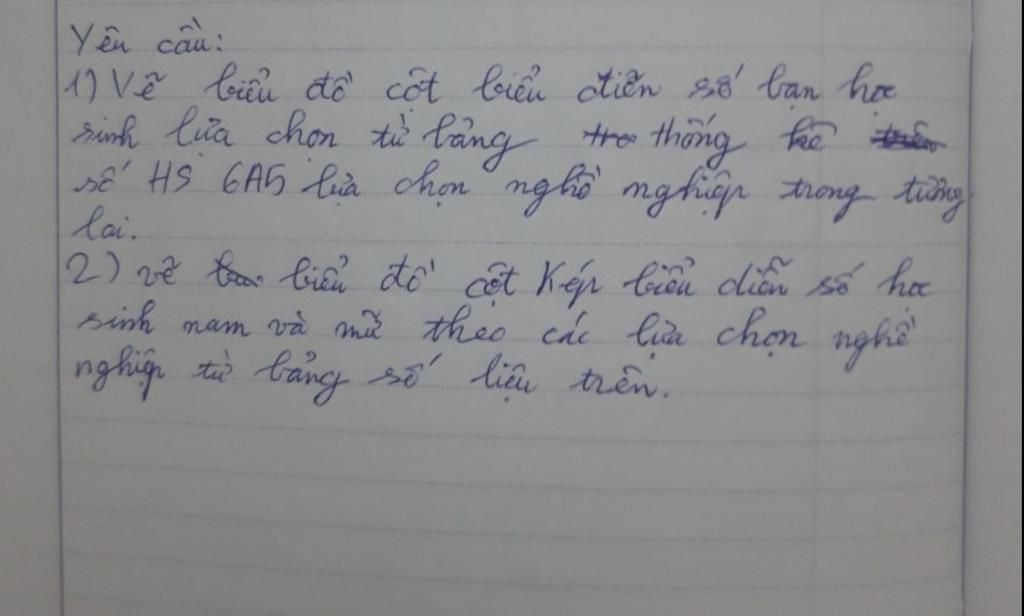 Yêu cầu:
1) Vẽ biểu đồ cột biểu diễn số bạn học
sinh lựa chọn từ bảng thống kê
số HS 6A5 lựa chọn nghề nghiệp trong tương
lai.
2) vẽ biểu đồ cột Kép biểu diễn số học
sinh nam và nữ theo các lựa chọn nghề
nghiệp từ bảng số liệu trên.